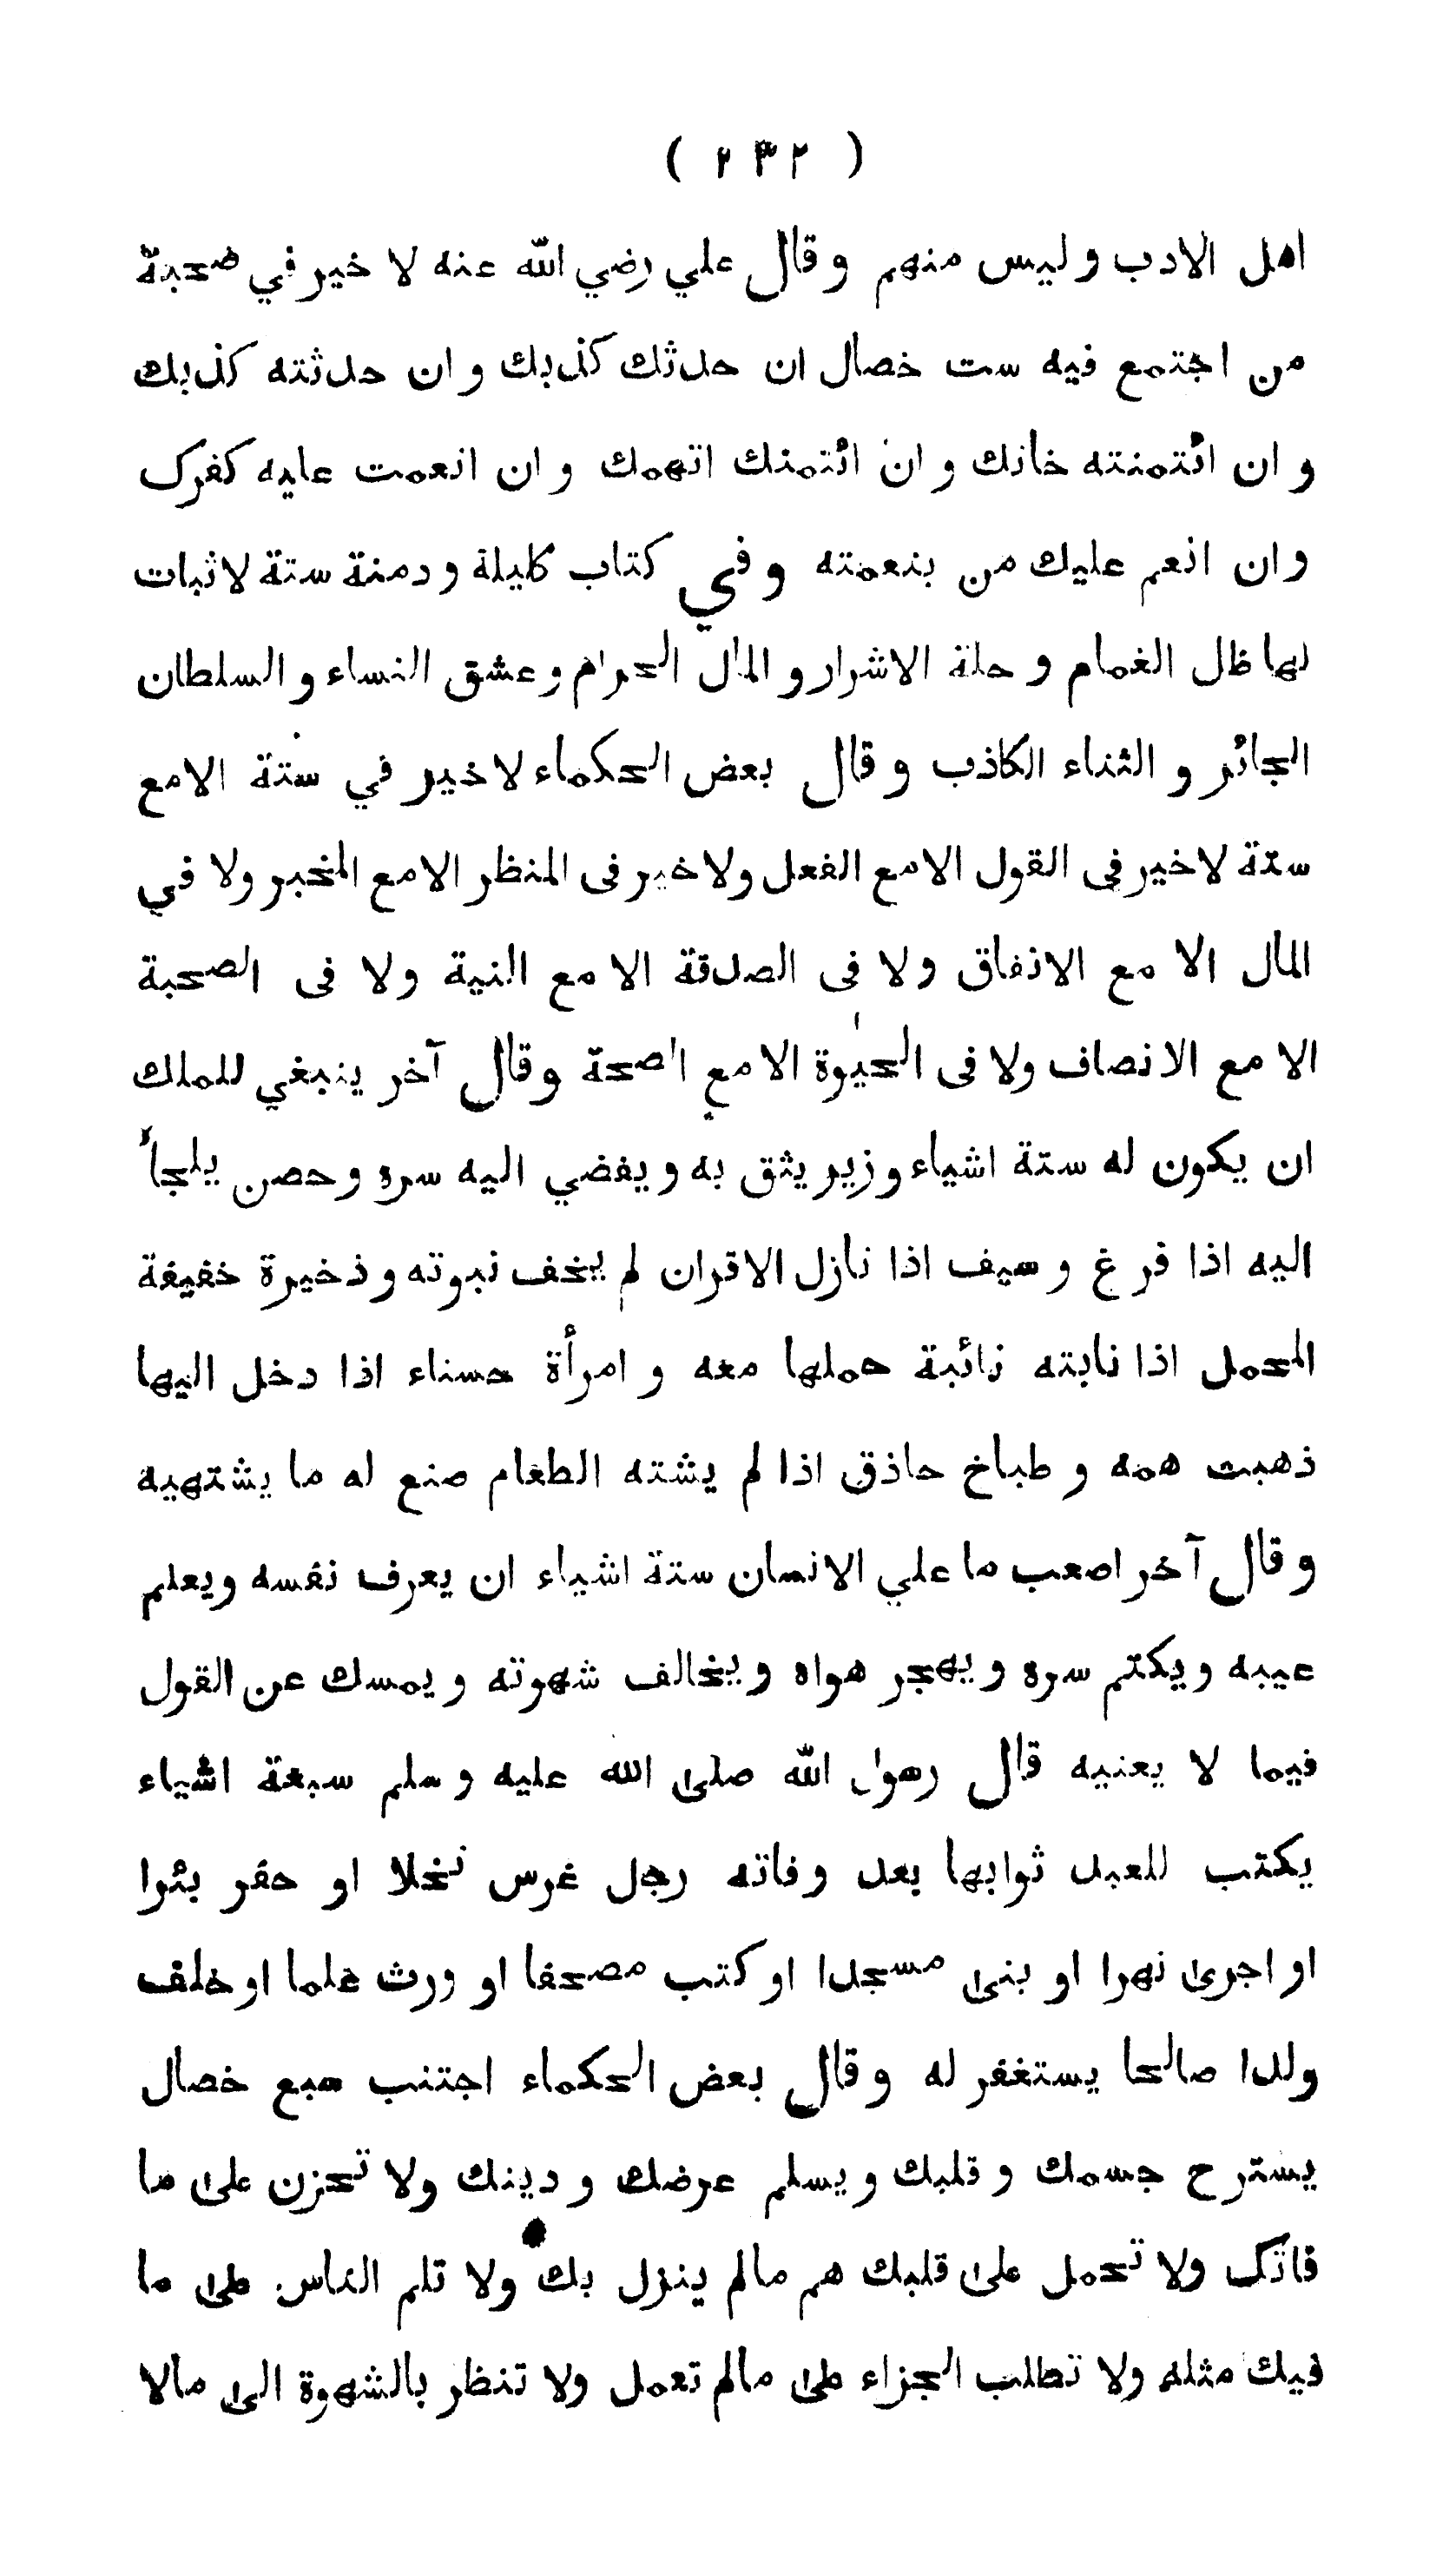 ( ٢٣٢ )
اهل الادب وليس منهم وقال علي رضي الله عنه لا خير في صحبة
من اجتمع فيه ست خصال ان حدثك كذبك وان حدثته كذبك
وان ائتمنته خانك وان ائتمنك اتهمك وان انعمت عليه كفرك
وان انعم عليك من بنعمته وفي كتاب كليلة ودمنة ستة لاثبات
لها ظل الغمام وخلة الاشرار والمال الحرام وعشق النساء والسلطان
الجائر والثناء الكاذب وقال بعض الحكماء لاخير في ستة الامع
ستة لاخير في القول الامع الفعل ولاخير فى المنظر الامع المخبر ولا في
المال الا مع الانفاق ولا فى الصدقة الا مع النية ولا فى الصحبة
الا مع الانصاف ولا فى الحيوة الا مع الصحة وقال آخر ينبغي للملك
ان يكون له ستة اشياء وزير يثق به ويفضي اليه سره وحصن يلجأ
اليه اذا فرغ وسيف اذا نازل الاقران لم يخف نبوته وذخيرة خفيفة
المحمل اذا نابته نائبة حملها معه وامرأة حسناء اذا دخل اليها
ذهبت همه وطباخ حاذق اذا لم يشته الطعام صنع له ما يشتهيه
وقال آخر اصعب ما علي الانسان ستة اشياء ان يعرف نفسه ويعلم
عيبه ويكتم سره ويهجر هواه ويخالف شهوته ويمسك عن القول
فيما لا يعنيه قال رسول الله صلى الله عليه وسلم سبعة اشياء
يكتب للعبد ثوابها بعد وفاته رجل غرس نخلا او حفر بئرا
او اجرى نهرا او بنى مسجدا او كتب مصحفا او ورث علما او خلف
ولدا صالحا يستغفر له وقال بعض الحكماء اجتنب سبع خصال
يسترح جسمك وقلبك ويسلم عرضك ودينك ولا تحزن على ما
فاتك ولا تحمل على قلبك هم مالم ينزل بك ولا تلم الناس على ما
فيك مثله ولا تطلب الجزاء على مالم تعمل ولا تنظر بالشهوة الى مالا